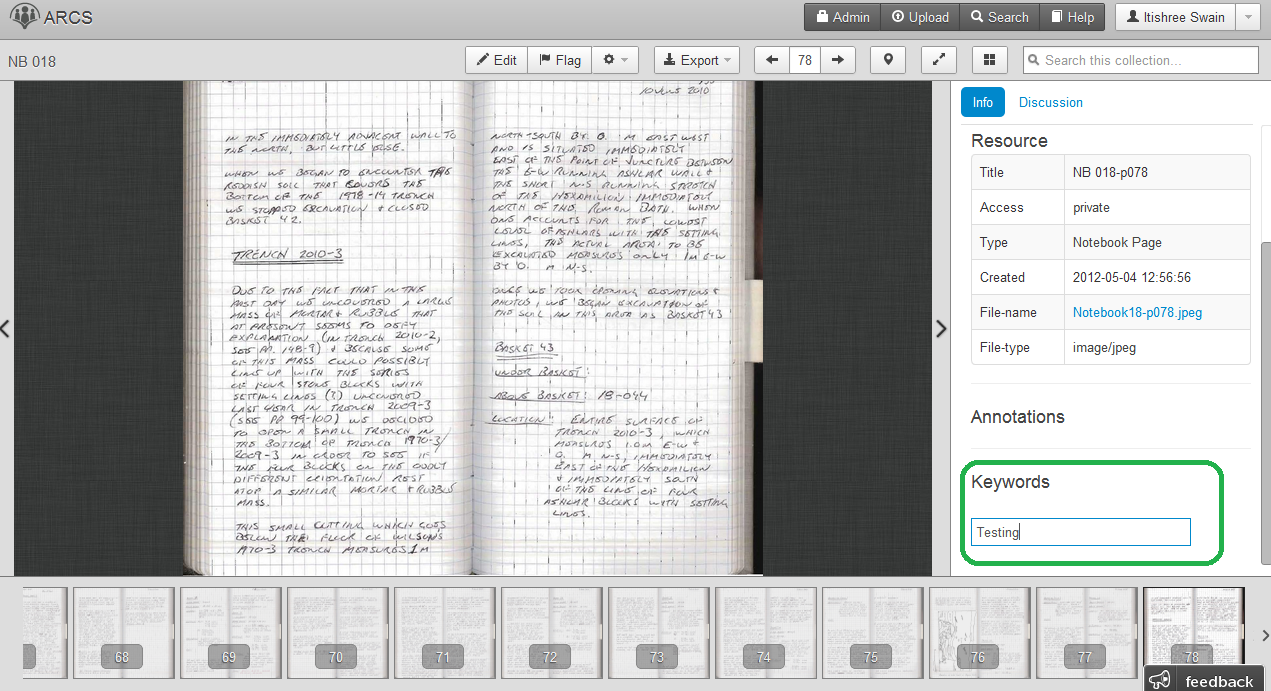 ARCS
Admin
Upload
Search
Help
Itishree Swain
NB 018
Edit
Flag
Export
78
Search this collection...
10 JUNE 2010
IN THE IMMEDIATELY ADJACENT WALL TO
THE NORTH, BUT LITTLE ELSE.
WHEN WE BEGAN TO ENCOUNTER THE
REDDISH SOIL THAT COVERS THE
BOTTOM OF THE 1978-14 TRENCH
WE STOPPED EXCAVATION & CLOSED
BASKET 42.
TRENCH 2010-3
DUE TO THE FACT THAT IN THE
PAST DAY WE UNCOVERED A LARGE
MASS OF MORTAR & RUBBLE THAT
AT PRESENT SEEMS TO DEFY
EXPLANATION (IN TRENCH 2010-2,
SEE PP. 148-9) & BECAUSE SOME
OF THIS MASS COULD POSSIBLY
LINE UP WITH THE SERIES
OF FOUR STONE BLOCKS WITH
SETTING LINES (?) UNCOVERED
LAST YEAR IN TRENCH 2009-3
(SEE PP 99-100) WE DECIDED
TO OPEN A SMALL TRENCH IN
THE BOTTOM OF TRENCH 1970-3/
2009-3 IN ORDER TO SEE IF
THE FOUR BLOCKS ON THE ODDLY
DIFFERENT ORIENTATION REST
ATOP A SIMILAR MORTAR & RUBBLE
MASS.
THIS SMALL CUTTING WHICH GOES
BELOW THE FLOOR OF WILSON'S
1970-3 TRENCH MEASURES 1 M
NORTH-SOUTH BY 0. M EAST WEST
AND IS SITUATED IMMEDIATELY
EAST OF THE POINT OF JUNCTURE BETWEEN
THE E-W RUNNING ASHLAR WALL &
THE SHORT N-S RUNNING STRETCH
OF THE HEXAMILION IMMEDIATELY
NORTH OF THE ROMAN BATH. WHEN
ONE ACCOUNTS FOR THE LOWEST
LEVEL OF ASHLARS WITH THE SETTING
LINES, THE ACTUAL AREA TO BE
EXCAVATED MEASURES ONLY 1M E-W
BY 0. M N-S.
ONCE WE TOOK OPENING ELEVATIONS &
PHOTOS, WE BEGAN EXCAVATION OF
THE SOIL IN THIS AREA AS BASKET 43
BASKET 43
UNDER BASKET:
ABOVE BASKET: 18-044
LOCATION: ENTIRE SURFACE OF
TRENCH 2010-3, WHICH
MEASURES 1.0M E-W &
0. M N-S, IMMEDIATELY
EAST OF THE HEXAMILION
& IMMEDIATELY SOUTH
OF THE LINE OF FOUR
ASHLAR BLOCKS WITH SETTING
LINES.
Info
Discussion
Resource
Title NB 018-p078
Access private
Type Notebook Page
Created 2012-05-04 12:56:56
File-name Notebook18-p078.jpeg
File-type image/jpeg
Annotations
Keywords
Testing
68
69
70
71
72
73
74
75
76
77
78
feedback